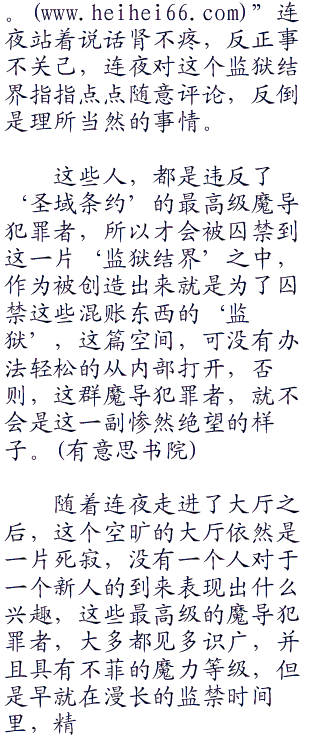 。(www.heihei66.com)”连
夜站着说话肾不疼，反正事
不关己，连夜对这个监狱结
界指指点点随意评论，反倒
是理所当然的事情。
这些人，都是违反了
‘圣域条约’的最高级魔导
犯罪者，所以才会被囚禁到
这一片‘监狱结界’之中，
作为被创造出来就是为了囚
禁这些混账东西的‘监
狱’，这篇空间，可没有办
法轻松的从内部打开，否
则，这群魔导犯罪者，就不
会是这一副惨然绝望的样
子。(有意思书院)
随着连夜走进了大厅之
后，这个空旷的大厅依然是
一片死寂，没有一个人对于
一个新人的到来表现出什么
兴趣，这些最高级的魔导犯
罪者，大多都见多识广，并
且具有不菲的魔力等级，但
是早就在漫长的监禁时间
里，精